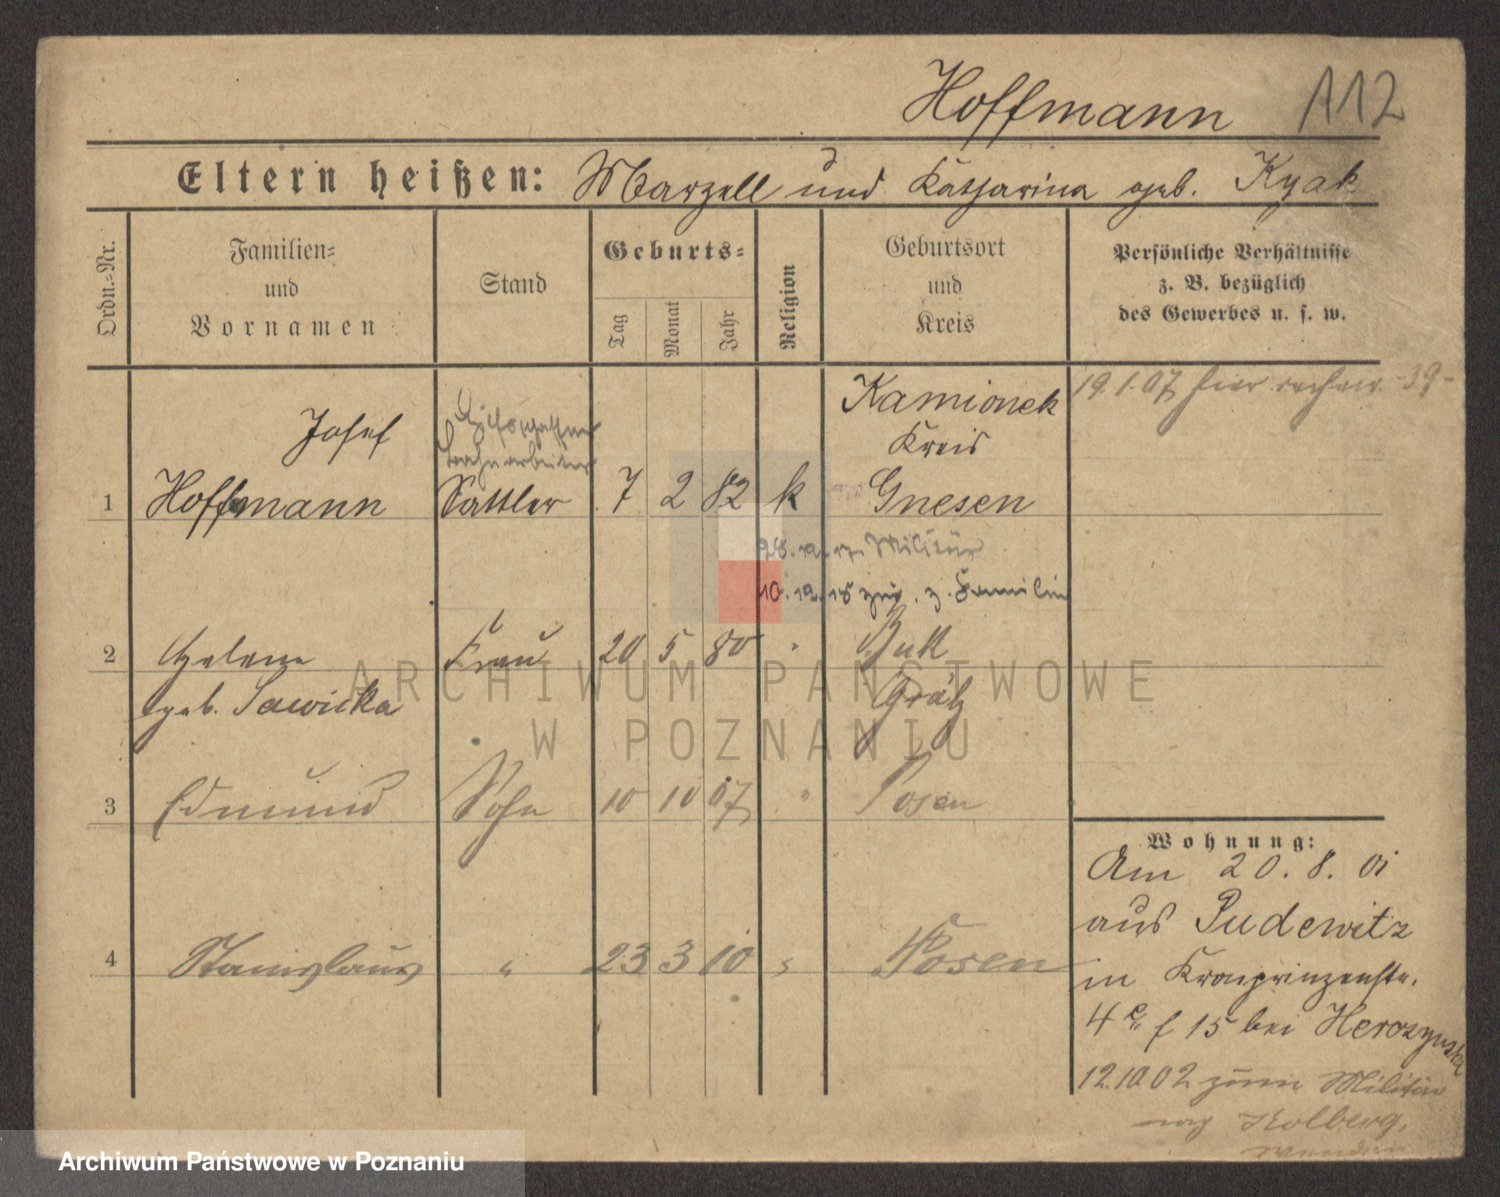 Hoffmann 112
Eltern heißen: Marzell und Katharina geb. Kyak
Ordn.-Nr.
Familien-
und
Vornamen
Stand
Geburts-
Tag
Monat
Jahr
Religion
Geburtsort
und
Kreis
Persönliche Verhältnisse
z. B. bezüglich
des Gewerbes u. s. w.
19. 1. 07 hier
Kamionek
Josef
Kreis
Bahnarbeiter
1 Hoffmann Sattler 7 2 82 k Gnesen
Militär
10. 12. 18 zur. z. Familie
2 Helene Frau 20 5 80 " Buk
geb. Sawicka Grätz
3 Edmund Sohn 10 10 07 " Posen
4 Stanislaus " 23 3 10 " Posen
Wohnung:
Am 20. 8. 01
aus Pudewitz
in Kronprinzenstr.
4 15 bei Herozynski
12.10.02 zum Militär
nach Kolberg.
ARCHIWUM PAŃSTWOWE
W POZNANIU
Archiwum Państwowe w Poznaniu